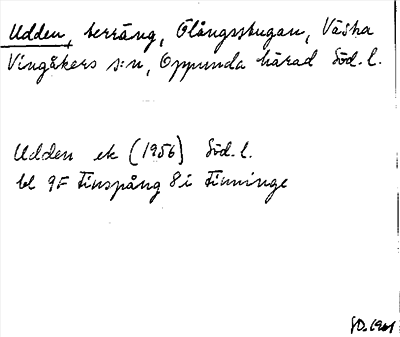 Udden, terräng, Olångsstugan, Västra
Vingåkers s:n, Oppunda härad Söd. l.
Udden ek (1956) Söd. l.
bl 9F Finspång 8i Finninge